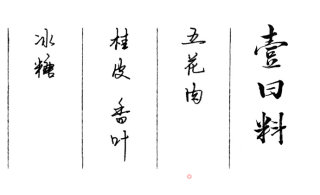 壹曰料
五花肉
桂皮 香叶
冰糖